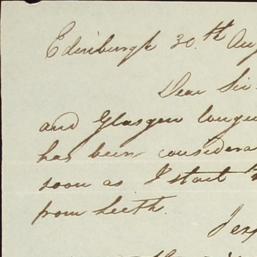 Edinburgh 30th Aug
Dear Sir
and Glasgow longer
has been considera
soon as I start
from Leith.